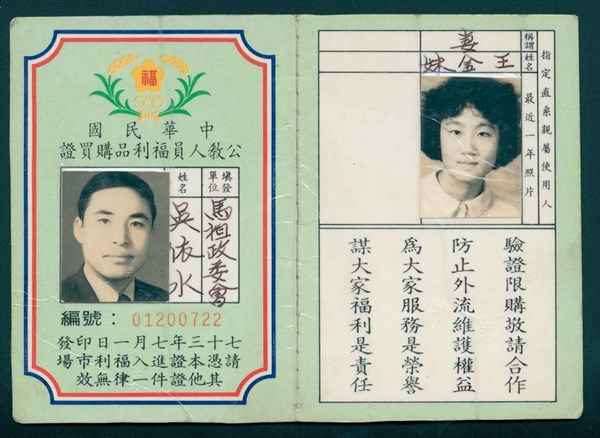 福
中華民國
公教人員福利品購買證
填發單位
馬祖政委會
姓名
吳依水
編號：01200722
七十三年七月一日印發
請憑本證進入福利市場
其他證件一律無效
指定直系親屬使用人
稱謂
妻
姓名
王金妹
最近一年照片
驗證限購敬請合作
防止外流維護權益
爲大家服務是榮譽
謀大家福利是責任